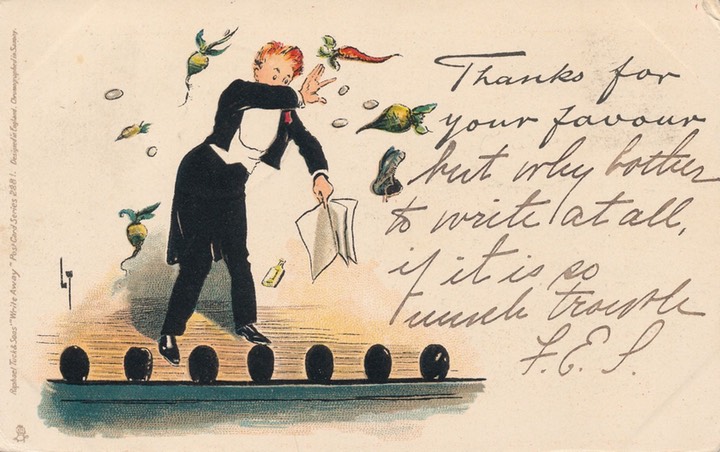 Thanks for
your favour
but why bother
to write at all,
if it is so
much trouble
F.E.S.
LT
Raphael Tuck & Sons' "Write Away" Post Card Series 2881. Designed in England. Chromographed in Saxony.